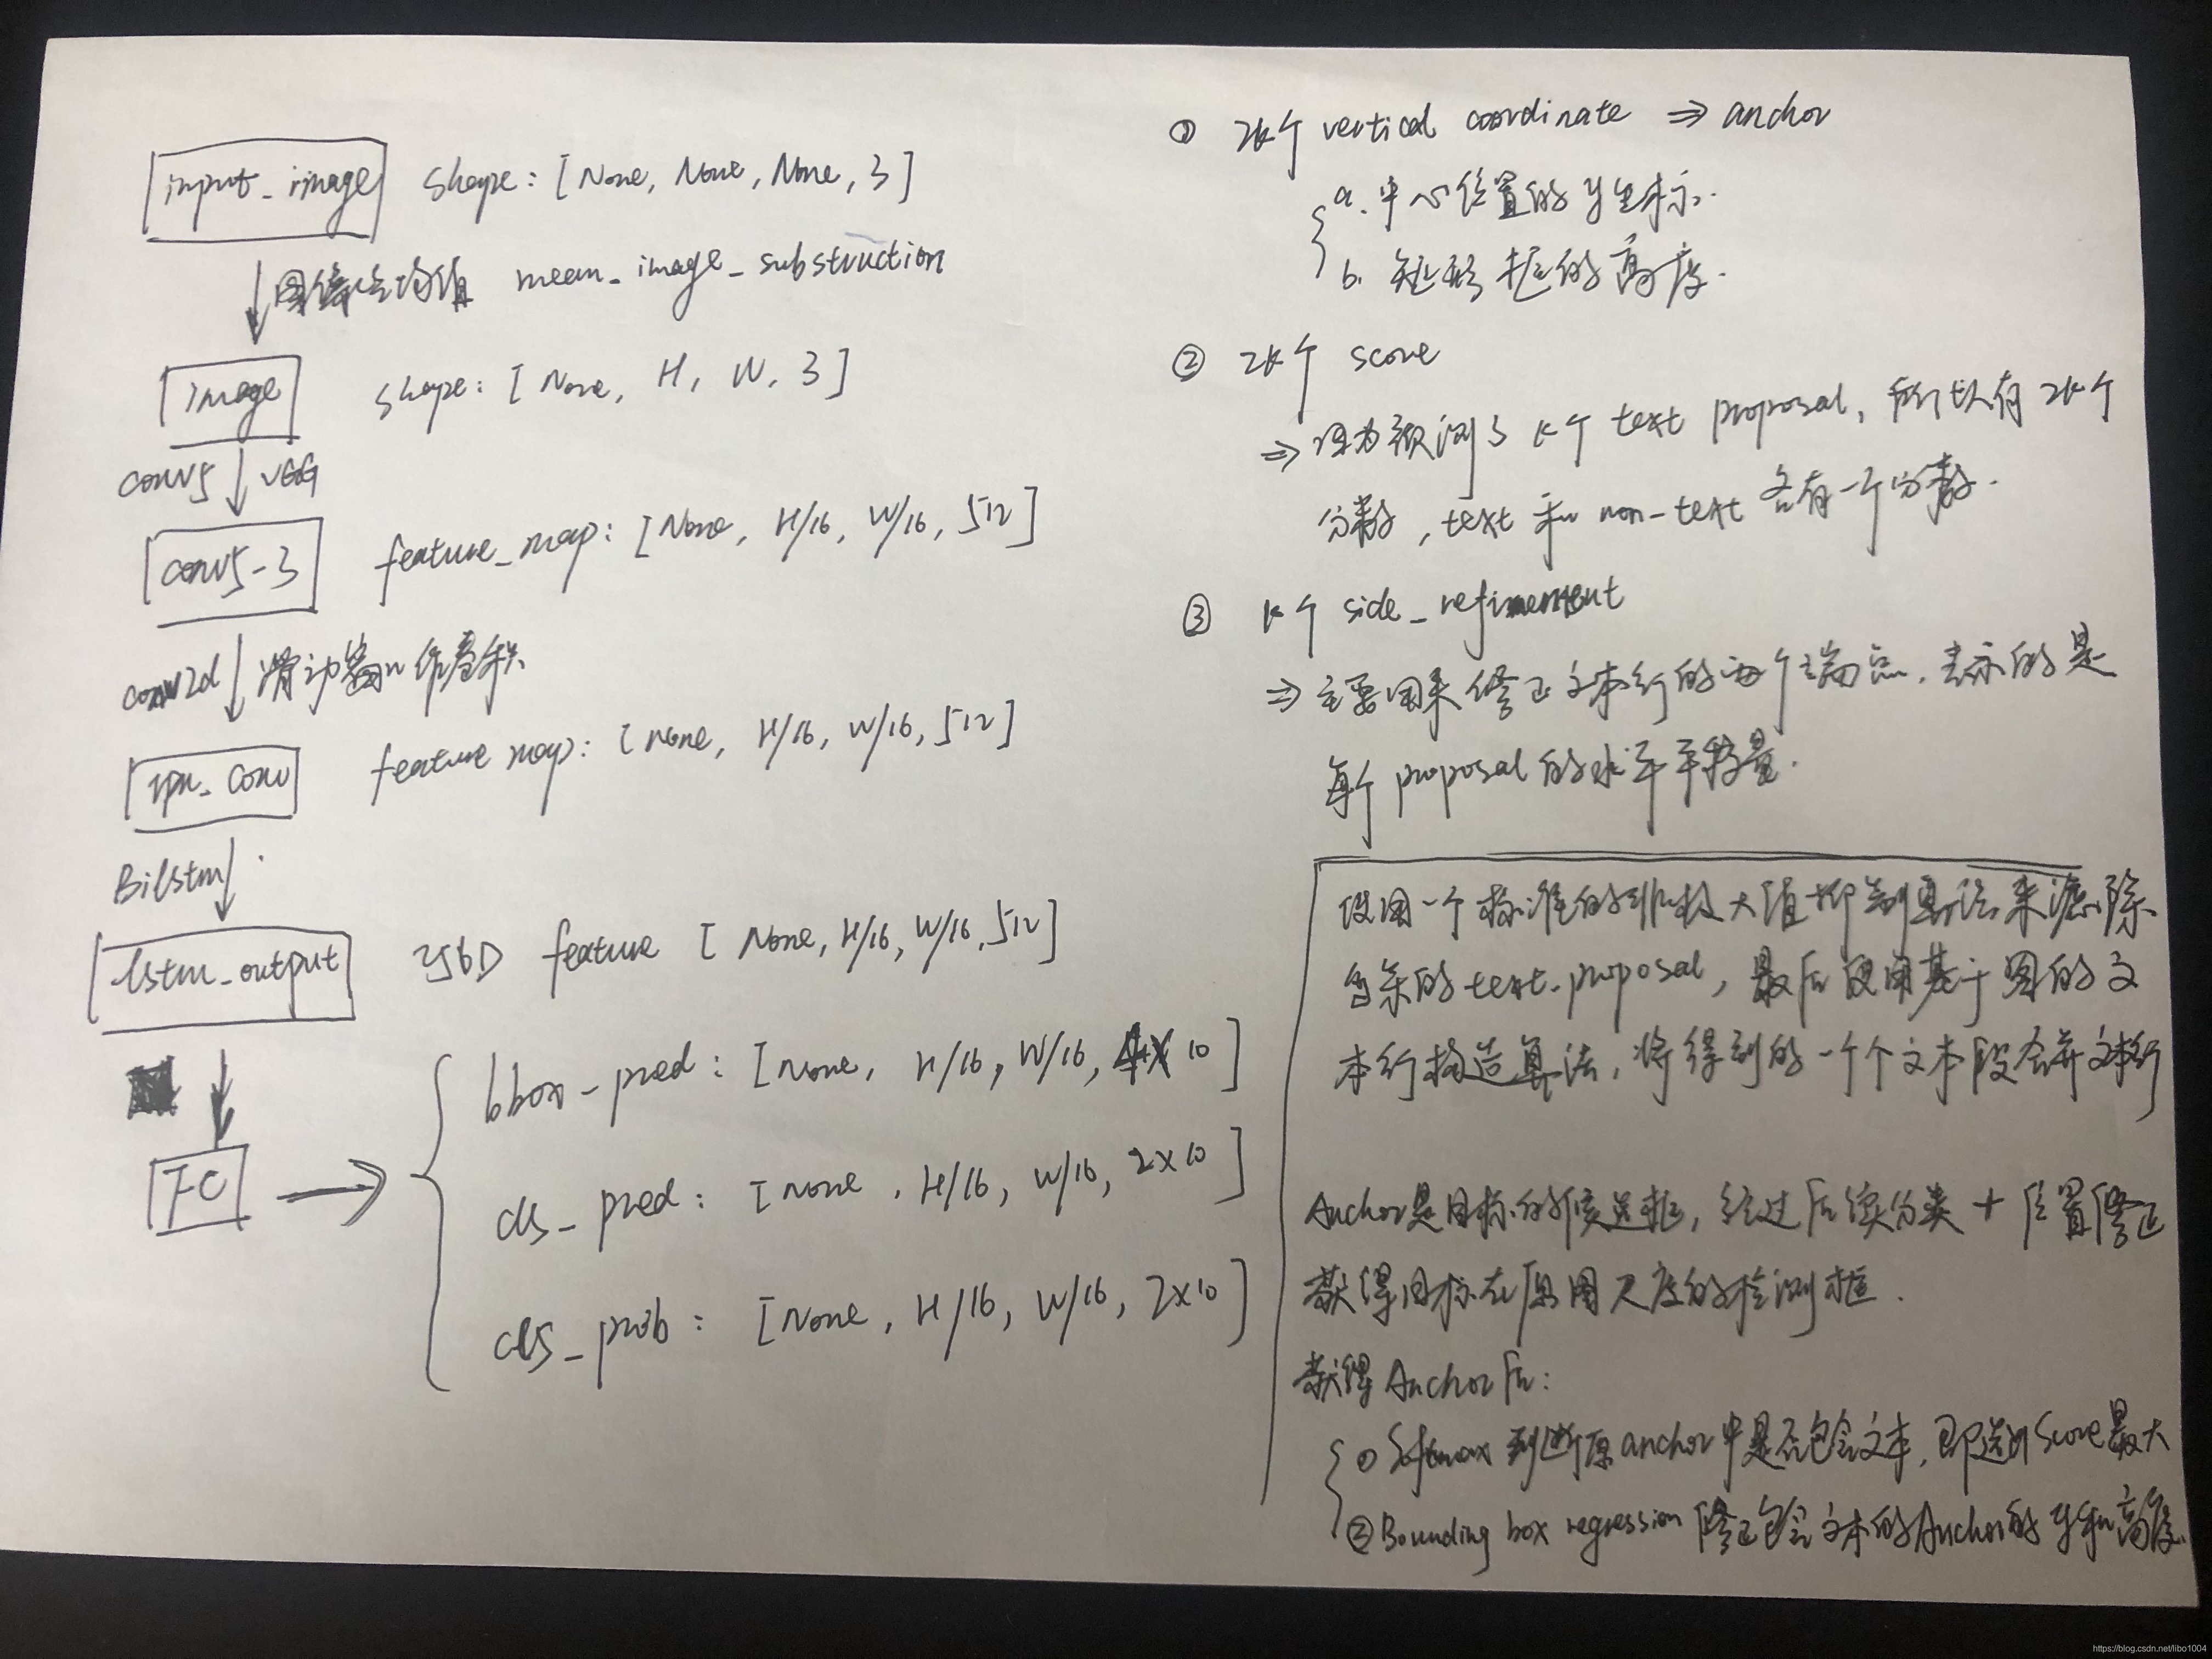 input_image shape: [None, None, None, 3]
图像去均值 mean_image_substruction
image shape: [None, H, W, 3]
conv5 VGG
conv5-3 feature_map: [None, H/16, W/16, 512]
conv2d 滑动窗口作卷积
rpn_conv feature map: [None, H/16, W/16, 512]
Bilstm
lstm_output 256D feature [None, H/16, W/16, 512]
FC
bbox_pred: [None, H/16, W/16, 4x10]
cls_pred: [None, H/16, W/16, 2x10]
cls_prob: [None, H/16, W/16, 2x10]
① 2k个 vertical coordinate ⇒ anchor
a. 中心位置的y坐标.
b. 矩形框的高度.
② 2k个 score
⇒ 因为预测了k个 text proposal, 所以有2k个
分数, text 和 non-text 各有一个分数.
③ k个 side_refinement
⇒ 主要用来修正文本行的两个端点, 表示的是
每个 proposal 的水平平移量.
使用一个标准的非极大值抑制算法来滤除
多余的 text_proposal, 最后使用基于图的文
本行构造算法, 将得到的一个个文本段合并文本行
Anchor是目标的候选框, 经过后续分类 + 位置修正
获得目标在原图尺度的检测框.
获得 Anchor 后:
① Softmax 判断原anchor中是否包含文本, 即选出Score最大
② Bounding box regression 修正包含文本的Anchor的y和高度.
https://blog.csdn.net/libo1004